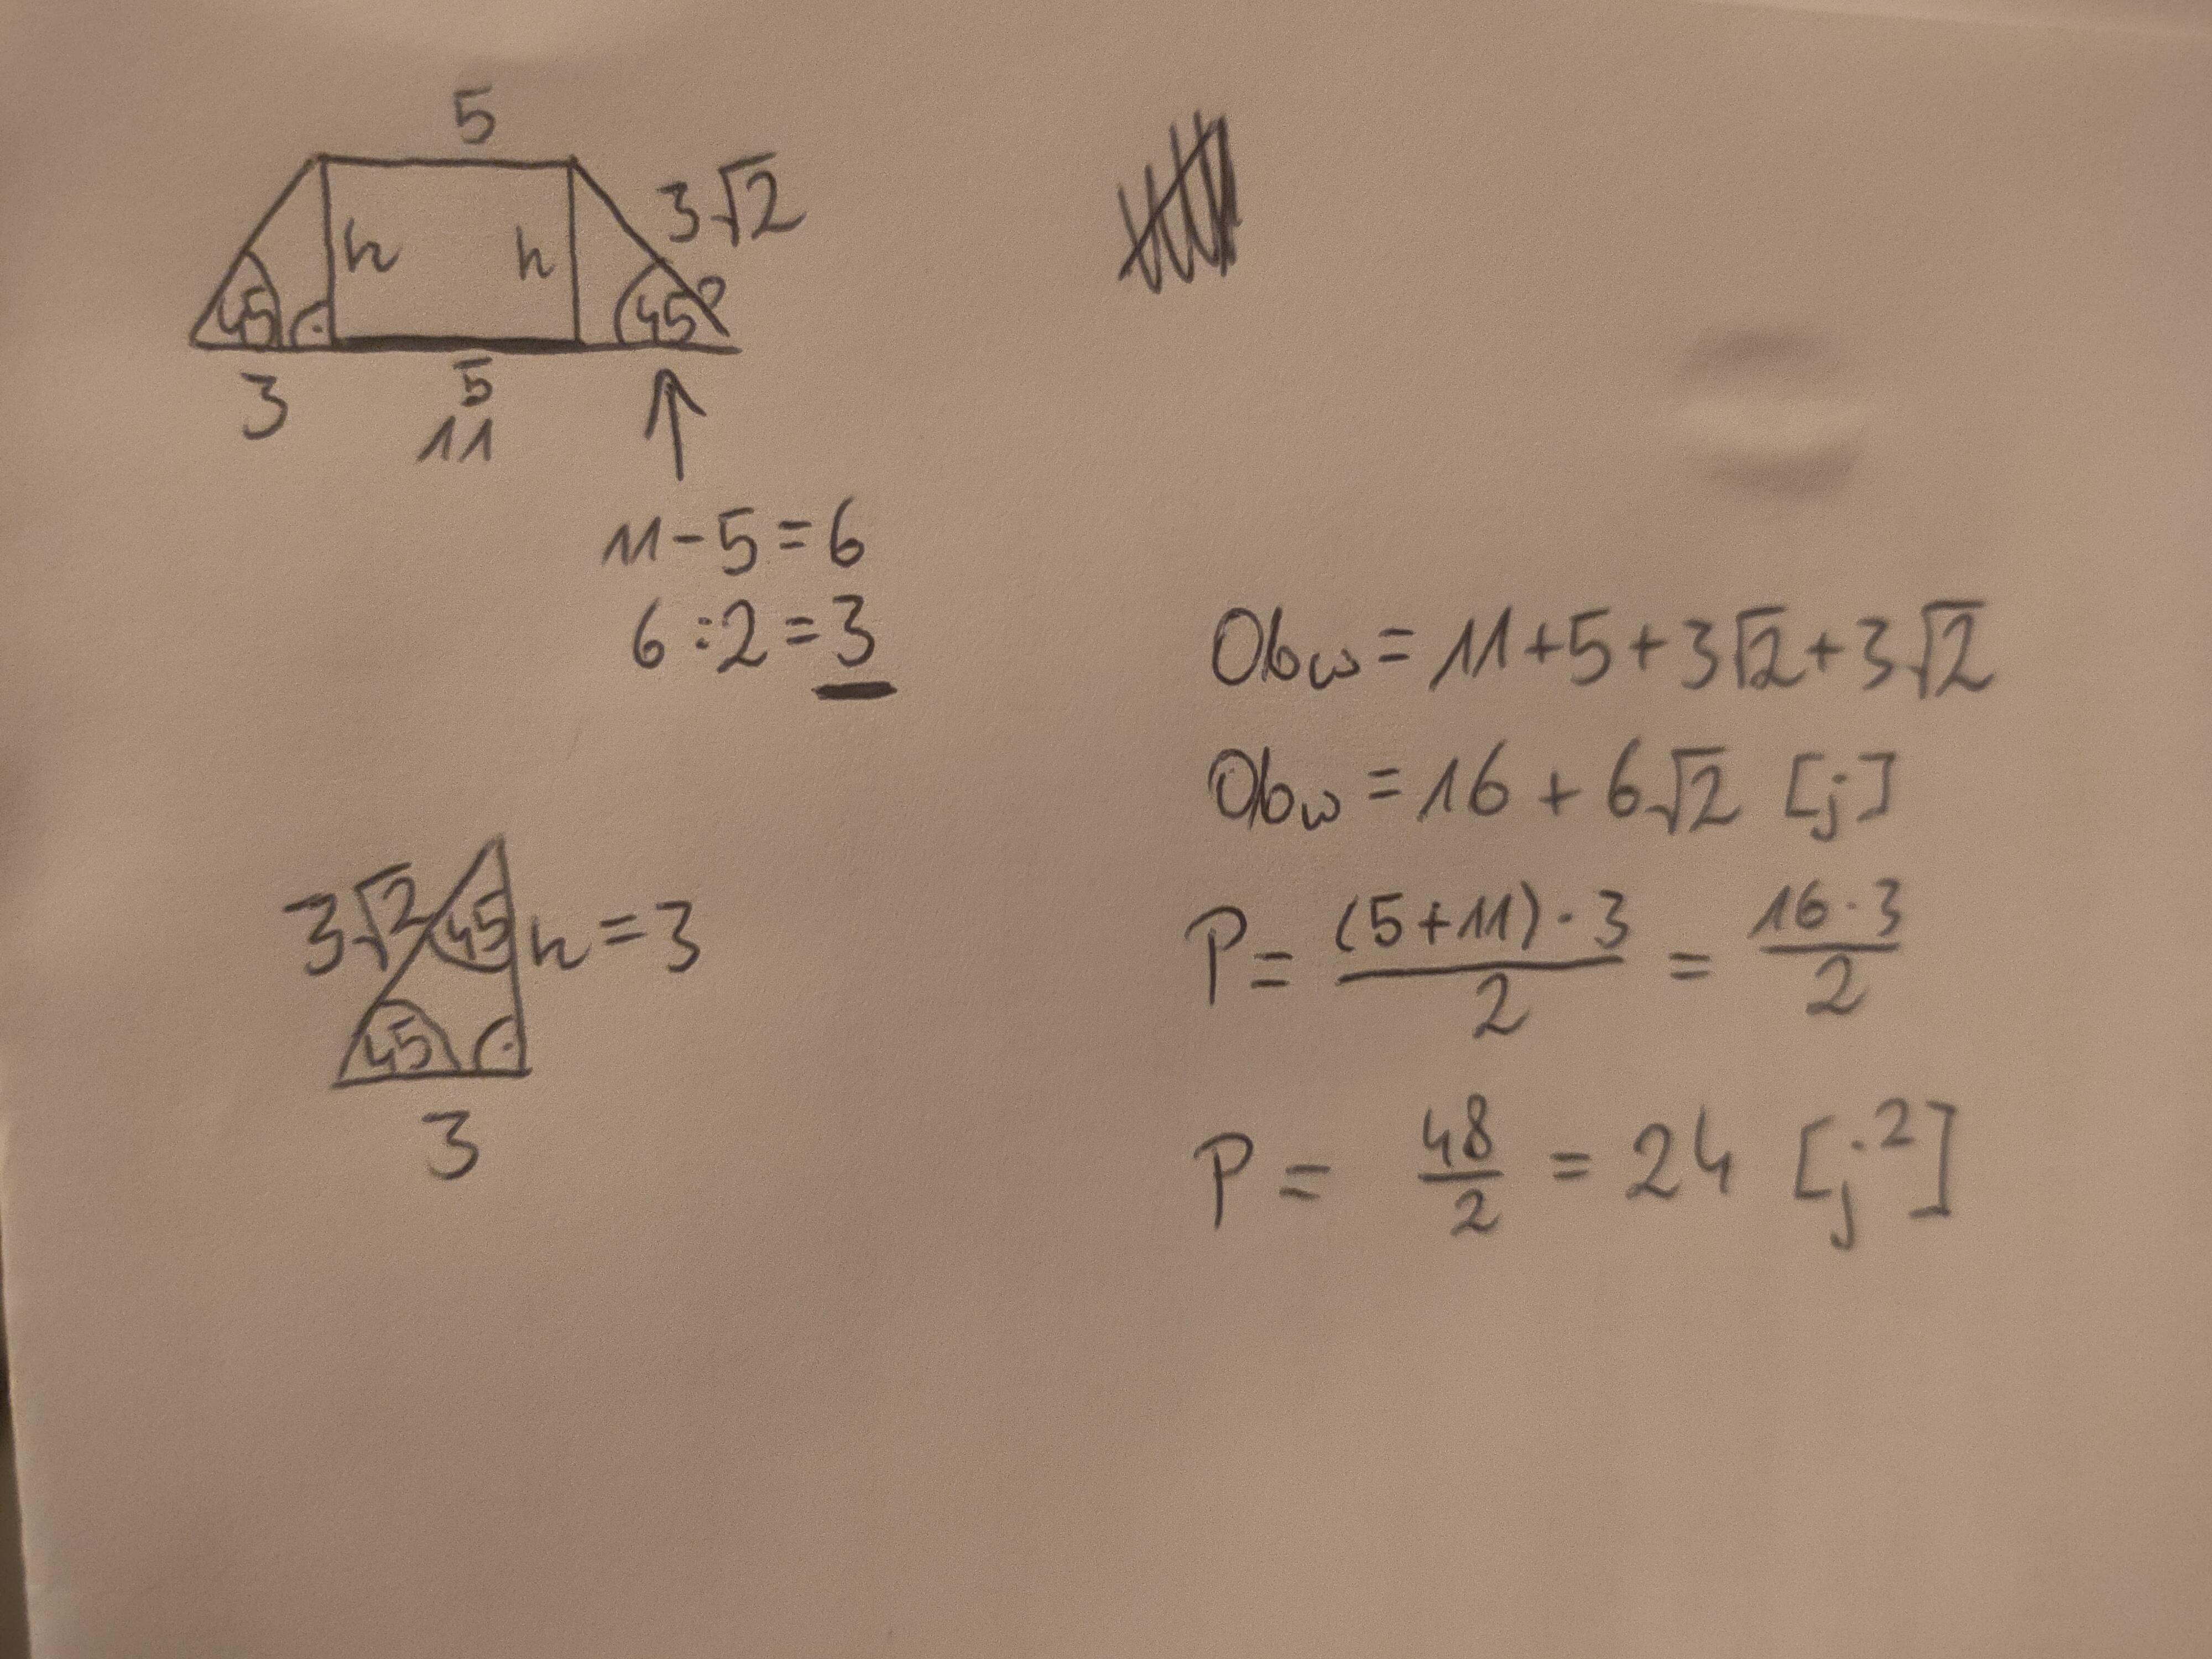 5
3√2
h h
45 45°
3 5
11
11-5=6
6:2=3
3√2 45 h=3
45
3
Obw=11+5+3√2+3√2
Obw=16+6√2 [j]
P=(5+11)·3/2=16·3/2
P=48/2=24 [j²]